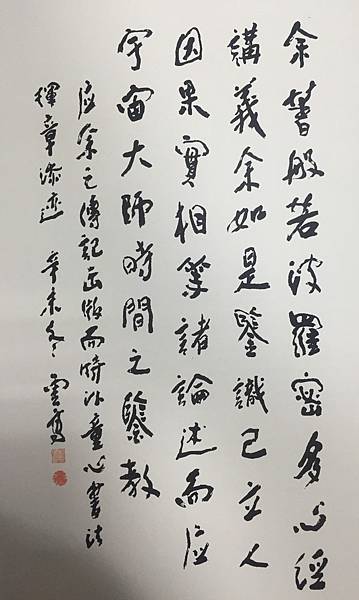 余著般若波羅密多心經
講義余如是鑒識己立人
因果實相等諸論述而應
宇宙大師時間之鑒教
應余之傳記出版而時以童心書法
揮章添迹 辛未冬 雲高